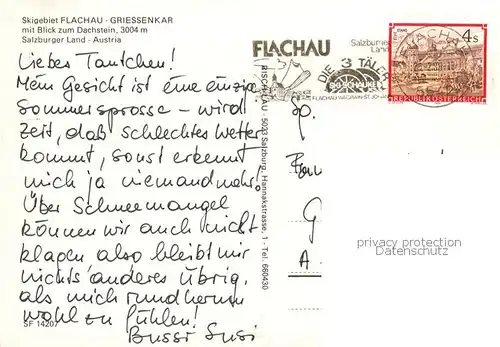 Skigebiet FLACHAU - GRIESSENKAR
mit Blick zum Dachstein, 3004 m
Salzburger Land - Austria
Liebes Tantchen!
Mein Gesicht ist eine einzige
Sommersprosse – wird
Zeit, daß schlechtes Wetter
kommt, sonst erkennt
mich ja niemand mehr!
Über Schneemangel
können wir auch nicht
klagen also bleibt mir
nichts anderes übrig,
als mich rundherum
wohl zu fühlen!
Bussi Susi
SF 14207
RISCH-LAU - 5033 Salzburg, Hannakstrasse, 1 - Tel. 660430
FLACHAU
Salzburger
Land
DIE 3 TÄLER
FLACHAU WAGRAIN ST. JOHANN
4 s
REPUBLIK ÖSTERREICH
G
A
privacy protection
watermark